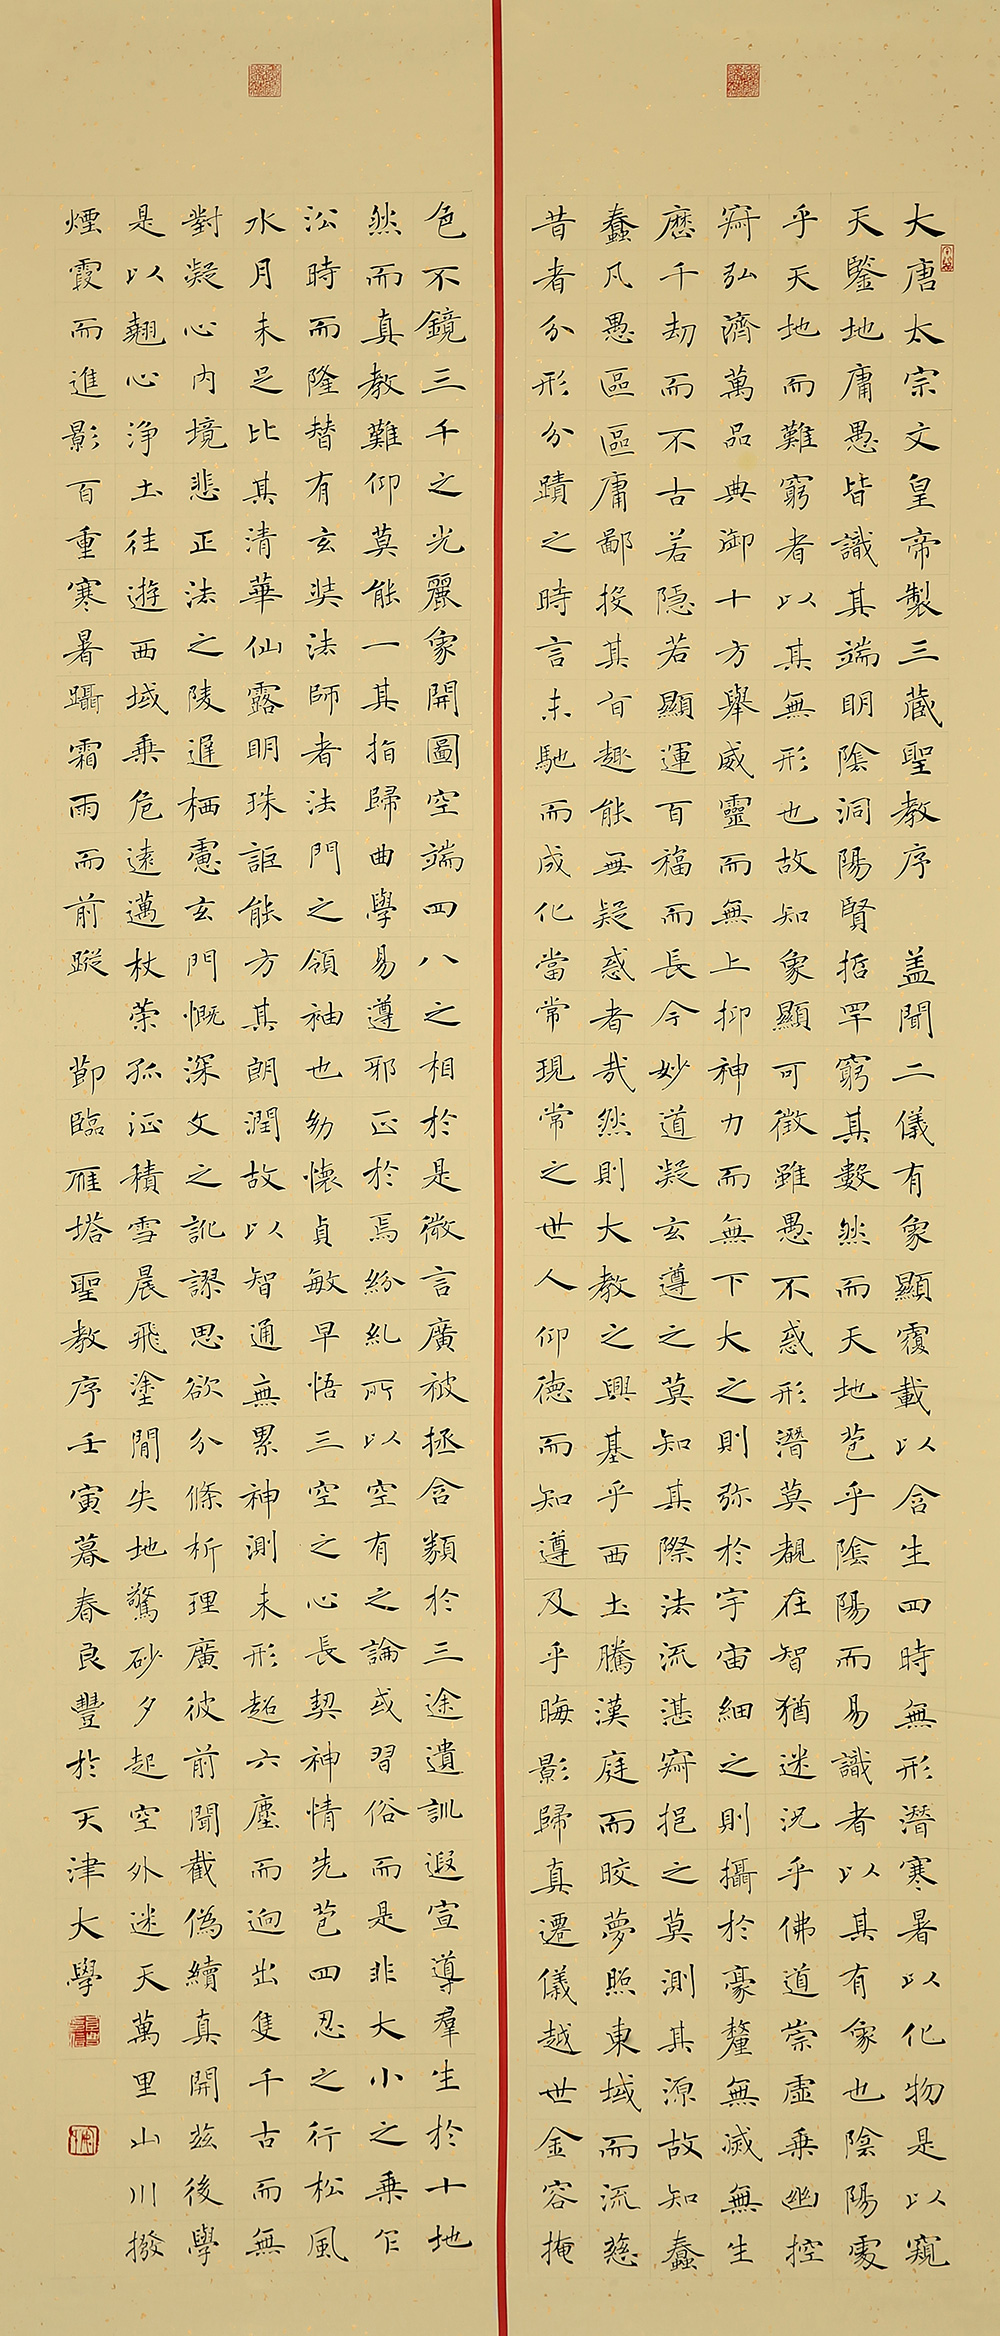 大唐太宗文皇帝製三藏聖教序 盖聞二儀有象顯覆載以含生四時無形潛寒暑以化物是以窺
天鑒地庸愚皆識其端明陰洞陽賢哲罕窮其數然而天地苞乎陰陽而易識者以其有象也陰陽處
乎天地而難窮者以其無形也故知象顯可徵雖愚不惑形潛莫覩在智猶迷況乎佛道崇虛乘幽控
寂弘濟萬品典御十方舉威靈而無上抑神力而無下大之則弥於宇宙細之則攝於豪釐無滅無生
歷千劫而不古若隱若顯運百福而長今妙道凝玄遵之莫知其際法流湛寂挹之莫測其源故知蠢
蠢凡愚區區庸鄙投其旨趣能無疑惑者哉然則大教之興基乎西土騰漢庭而皎夢照東域而流慈
昔者分形分蹟之時言未馳而成化當常現常之世人仰德而知遵及乎晦影歸真遷儀越世金容掩
色不鏡三千之光麗象開圖空端四八之相於是微言廣被拯含類於三途遺訓遐宣導羣生於十地
然而真教難仰莫能一其指歸曲學易遵邪正於焉紛糺所以空有之論或習俗而是非大小之乘乍
沿時而隆替有玄奘法師者法門之領袖也幼懷貞敏早悟三空之心長契神情先苞四忍之行松風
水月未足比其清華仙露明珠詎能方其朗潤故以智通無累神測未形超六塵而迥出隻千古而無
對凝心內境悲正法之陵遲栖慮玄門慨深文之訛謬思欲分條析理廣彼前聞截偽續真開茲後學
是以翹心淨土往遊西域乘危遠邁杖策孤征積雪晨飛塗閒失地驚砂夕起空外迷天萬里山川撥
煙霞而進影百重寒暑躡霜雨而前蹤 節臨雁塔聖教序壬寅暮春良豐於天津大學